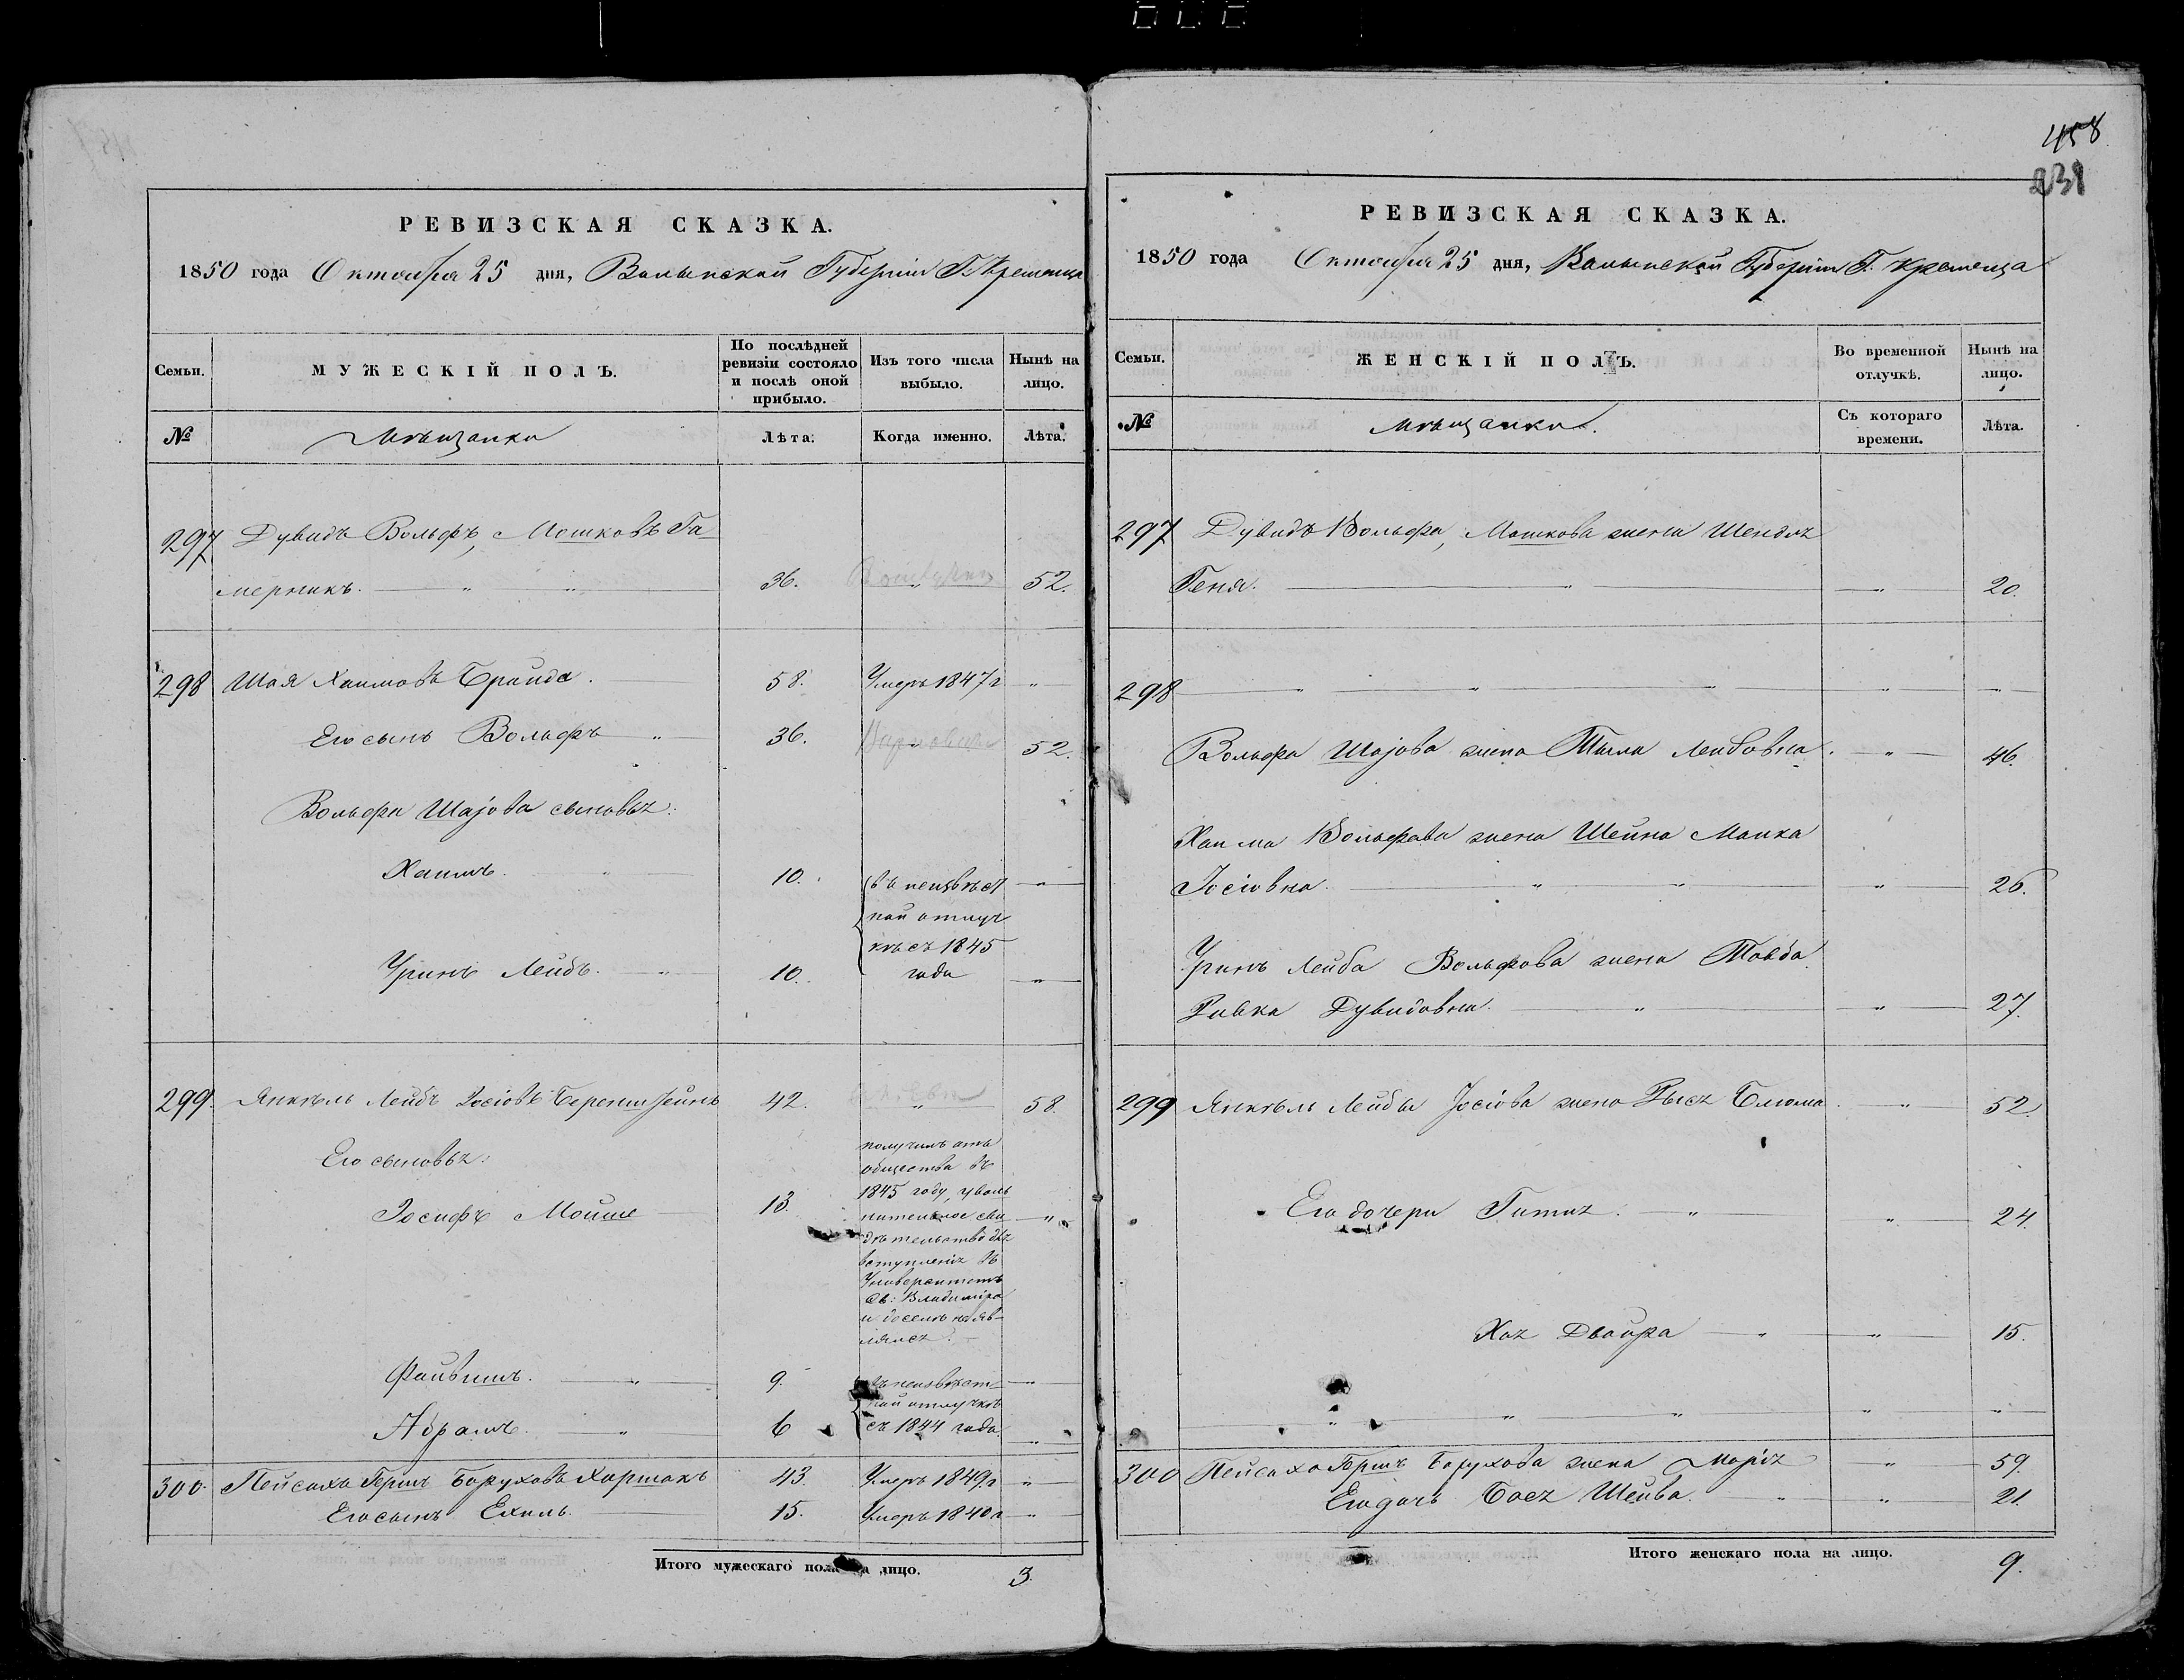 458
239
РЕВИЗСКАЯ СКАЗКА.
1850 года Октября 25 дня, Волынской Губерніи Г. Кременца
Семьи.
МУЖЕСКІЙ ПОЛЪ.
По послѣдней ревизіи состояло и послѣ оной прибыло.
Изъ того числа выбыло.
Нынѣ на лицо.
№
Мѣщанки
Лѣта.
Когда именно.
Лѣта.
297 Дувидъ Вольфъ, Мошковъ Га-
мерникъ. 36. 52.
298 Шая Хаимовъ Брайда. 58. Умеръ 1847 г
Его сынъ Вольфъ 36. 52.
Вольфа Шаjова сыновья:
Хаимъ. 10. въ неизвѣст
ной отлуч
кѣ съ 1845
Уринъ Лейбъ. 10. года
299. Янкѣль Лейбъ Іосіовъ Беренштейнъ 42. 58.
Его сыновья:
получилъ отъ
общества въ
1845 году, уволь
Іосифъ Мойше 13. нительное сви
дѣтельство для
вступленія въ
Университетъ
Св: Владиміра
и доселѣ не яв-
лялся.
Файвишъ. 9. въ неизвѣст-
ной отлучкѣ
Абрамъ. 6 съ 1844 года.
300. Пейсахъ Гершъ Боруховъ Хоршакъ 43. Умеръ 1849 г
Его сынъ Ехиль. 15. Умеръ 1840 г
Итого мужескаго пола на лицо. 3.
РЕВИЗСКАЯ СКАЗКА.
1850 года Октября 25 дня, Волынской Губерніи Г. Кременца
Семьи.
ЖЕНСКІЙ ПОЛЪ.
Во временной отлучкѣ.
Нынѣ на лицо.
№
Мѣщанки.
Съ котораго времени.
Лѣта.
297 Дувидъ Вольфа, Мошкова жена Шендля
Геня. 20.
298
Вольфа Шаjова жена Тыля Лейбовна. 46.
Хаима Вольфова жена Шейна Малка
Іосіовна. 26.
Уринъ Лейба Вольфова жена Товба
Ривка Дувидовна. 27.
299 Янкѣль Лейбы Іосіова жена Рыся Блюма 52.
Его дочери Гитля. 24.
Хая Двойра 15.
300 Пейсаха Гершъ Борухова жена Марія 59.
Его дочь Бася Шейва. 21.
Итого женскаго пола на лицо. 9.